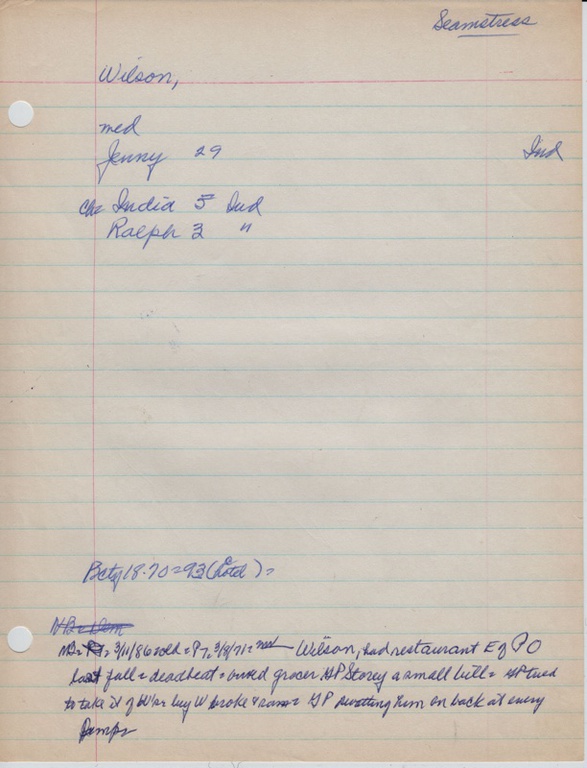 Seamstress
Wilson,
med
Jenny 29 Ind
Chn India 5 Ind
Ralph 3 "
Bcty 18-70=93 (Hotel) =
NB=Dem
NB= P7= 3/11/86 sold = P7= 3/8/71= ned Wilson, had restaurant E of PO
last fall = deadbeat = owed grocer GP Storey a small bill = GP tried
to take it of W's buy W broke & ran = GP swatting him on back at every
jump